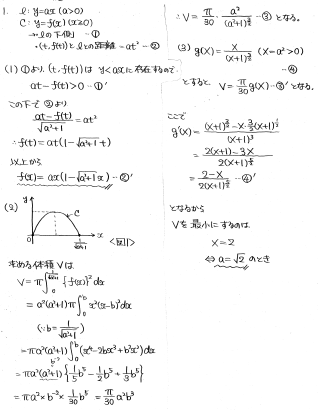 1. l: y=ax (a>0)
C: y=f(x) (x≥0)
→ lの下側 …①
・(t, f(t))とlとの距離 = at² …②
(1) ①より, (t, f(t))は y<axに存在するので
at-f(t)>0 …①'
この下で ②より
(at-f(t))/√(a²+1) = at²
∴ f(t)=at(1-√(a²+1)t)
以上から
f(x)=ax(1-√(a²+1)x) …②'
(2)
y
C
0
x
1/√(a²+1)
<図1>
求める体積Vは
V=π∫₀^(1/√(a²+1)) {f(x)}²dx
=a²(a²+1)π∫₀^b x²(x-b)²dx
(∵ b=1/√(a²+1))
=πa²(a²+1)∫₀^b (x⁴-2bx³+b²x²)dx
b⁻²
=πa²(a²+1){1/5 b⁵ - 1/2 b⁵ + 1/3 b⁵}
=πa²×b⁻²×1/30 b⁵ = π/30 a²b³
∴ V=π/30 · a²/(a²+1)^(3/2) …③ となる。
(3) g(X)=X/(X+1)^(3/2) (X=a²>0) …④
とすると V=π/30 g(X) …③' となる。
ここで
g'(X)=((X+1)^(3/2)-X·3/2(X+1)^(1/2))/(X+1)³
=(2(X+1)-3X)/(2(X+1)^(5/2))
=(2-X)/(2(X+1)^(5/2)) …④'
となるから
Vを最小にするのは
X=2
⇔ a=√2 のとき